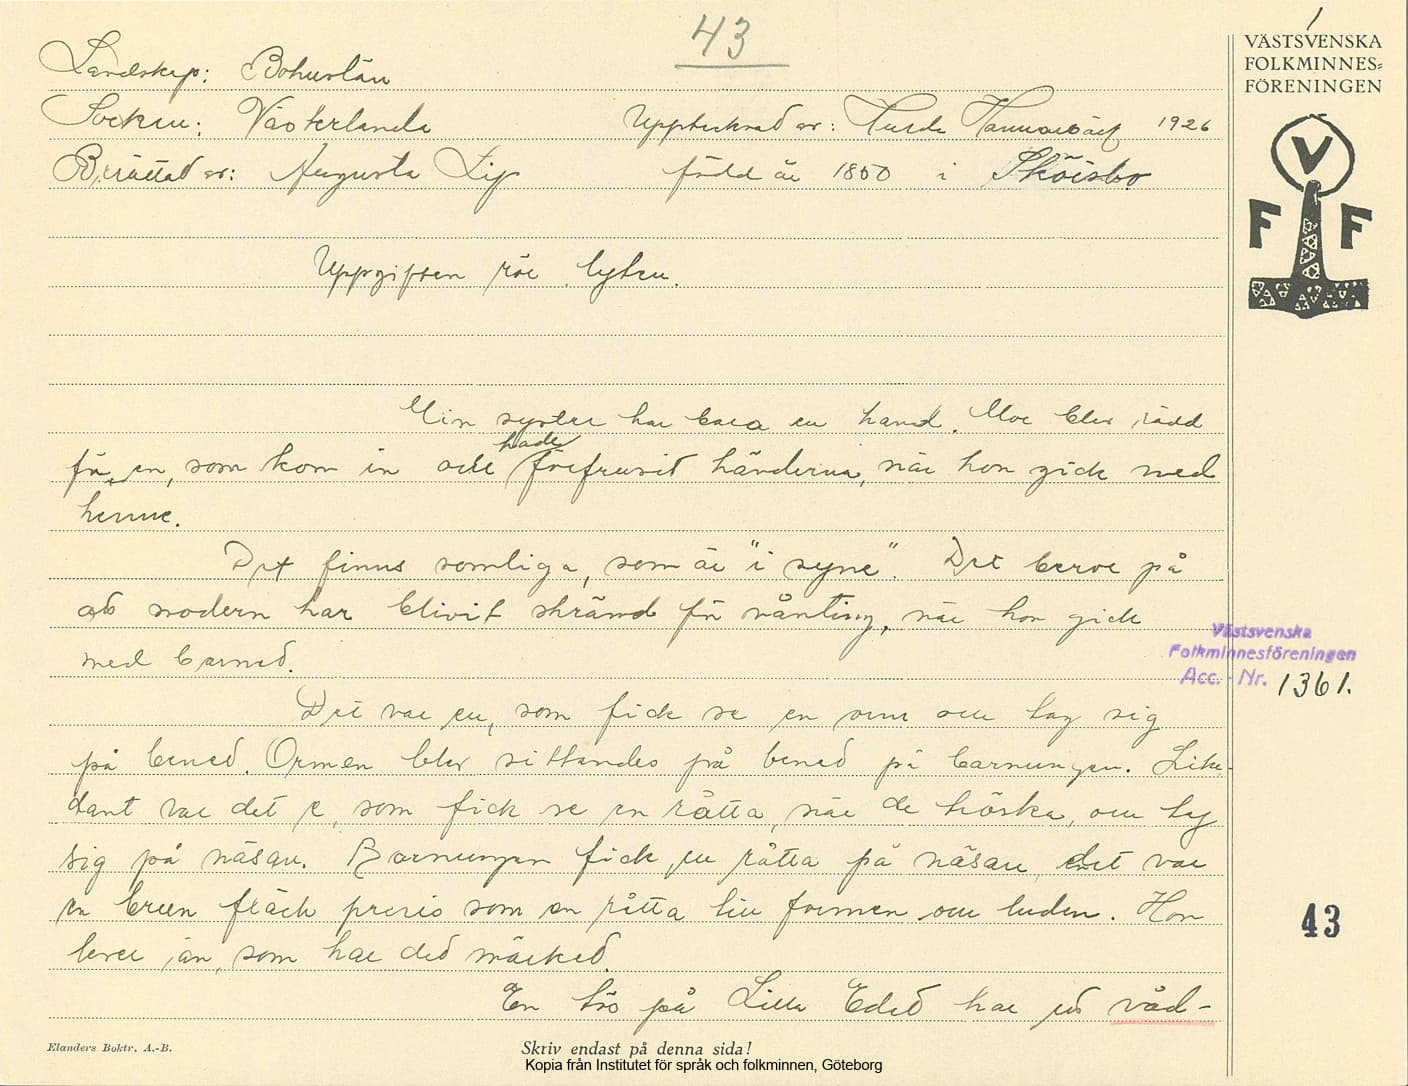 43
1
VÄSTSVENSKA
FOLKMINNES=
FÖRENINGEN
V
F F
Landskap: Bohuslän
Socken: Västerlanda Upptecknad av: 1926
Berättad av: Augusta född år 1850 i Sköisbo
Uppgiften rör lyten.
Min syster har bara en hand. Mor blev rädd
hade
för en, som kom in och förfrusit händerna, när hon gick med
henne.
Det finns somliga, som är "i syne". Det beror på
att modern har blivit skrämd för nånting, när hon gick
med barned.
Det var en, som fick se en orm och tag sig
på bened. Ormen blev sittandes på bened på barnungen. Like-
dant var det e, som fick se en råtta, när de tröska, och tag
sig på näsan. Barnungen fick en råtta på näsan, det var
en brun fläck precis som en råtta till formen och luden. Hon
lever än, som har ded märked.
En tös på Lilla Eded har ed våd-
Västsvenska
Folkminnesföreningen
Acc. - Nr. 1361.
43
Elanders Boktr. A.-B.
Skriv endast på denna sida!
Kopia från Institutet för språk och folkminnen, Göteborg